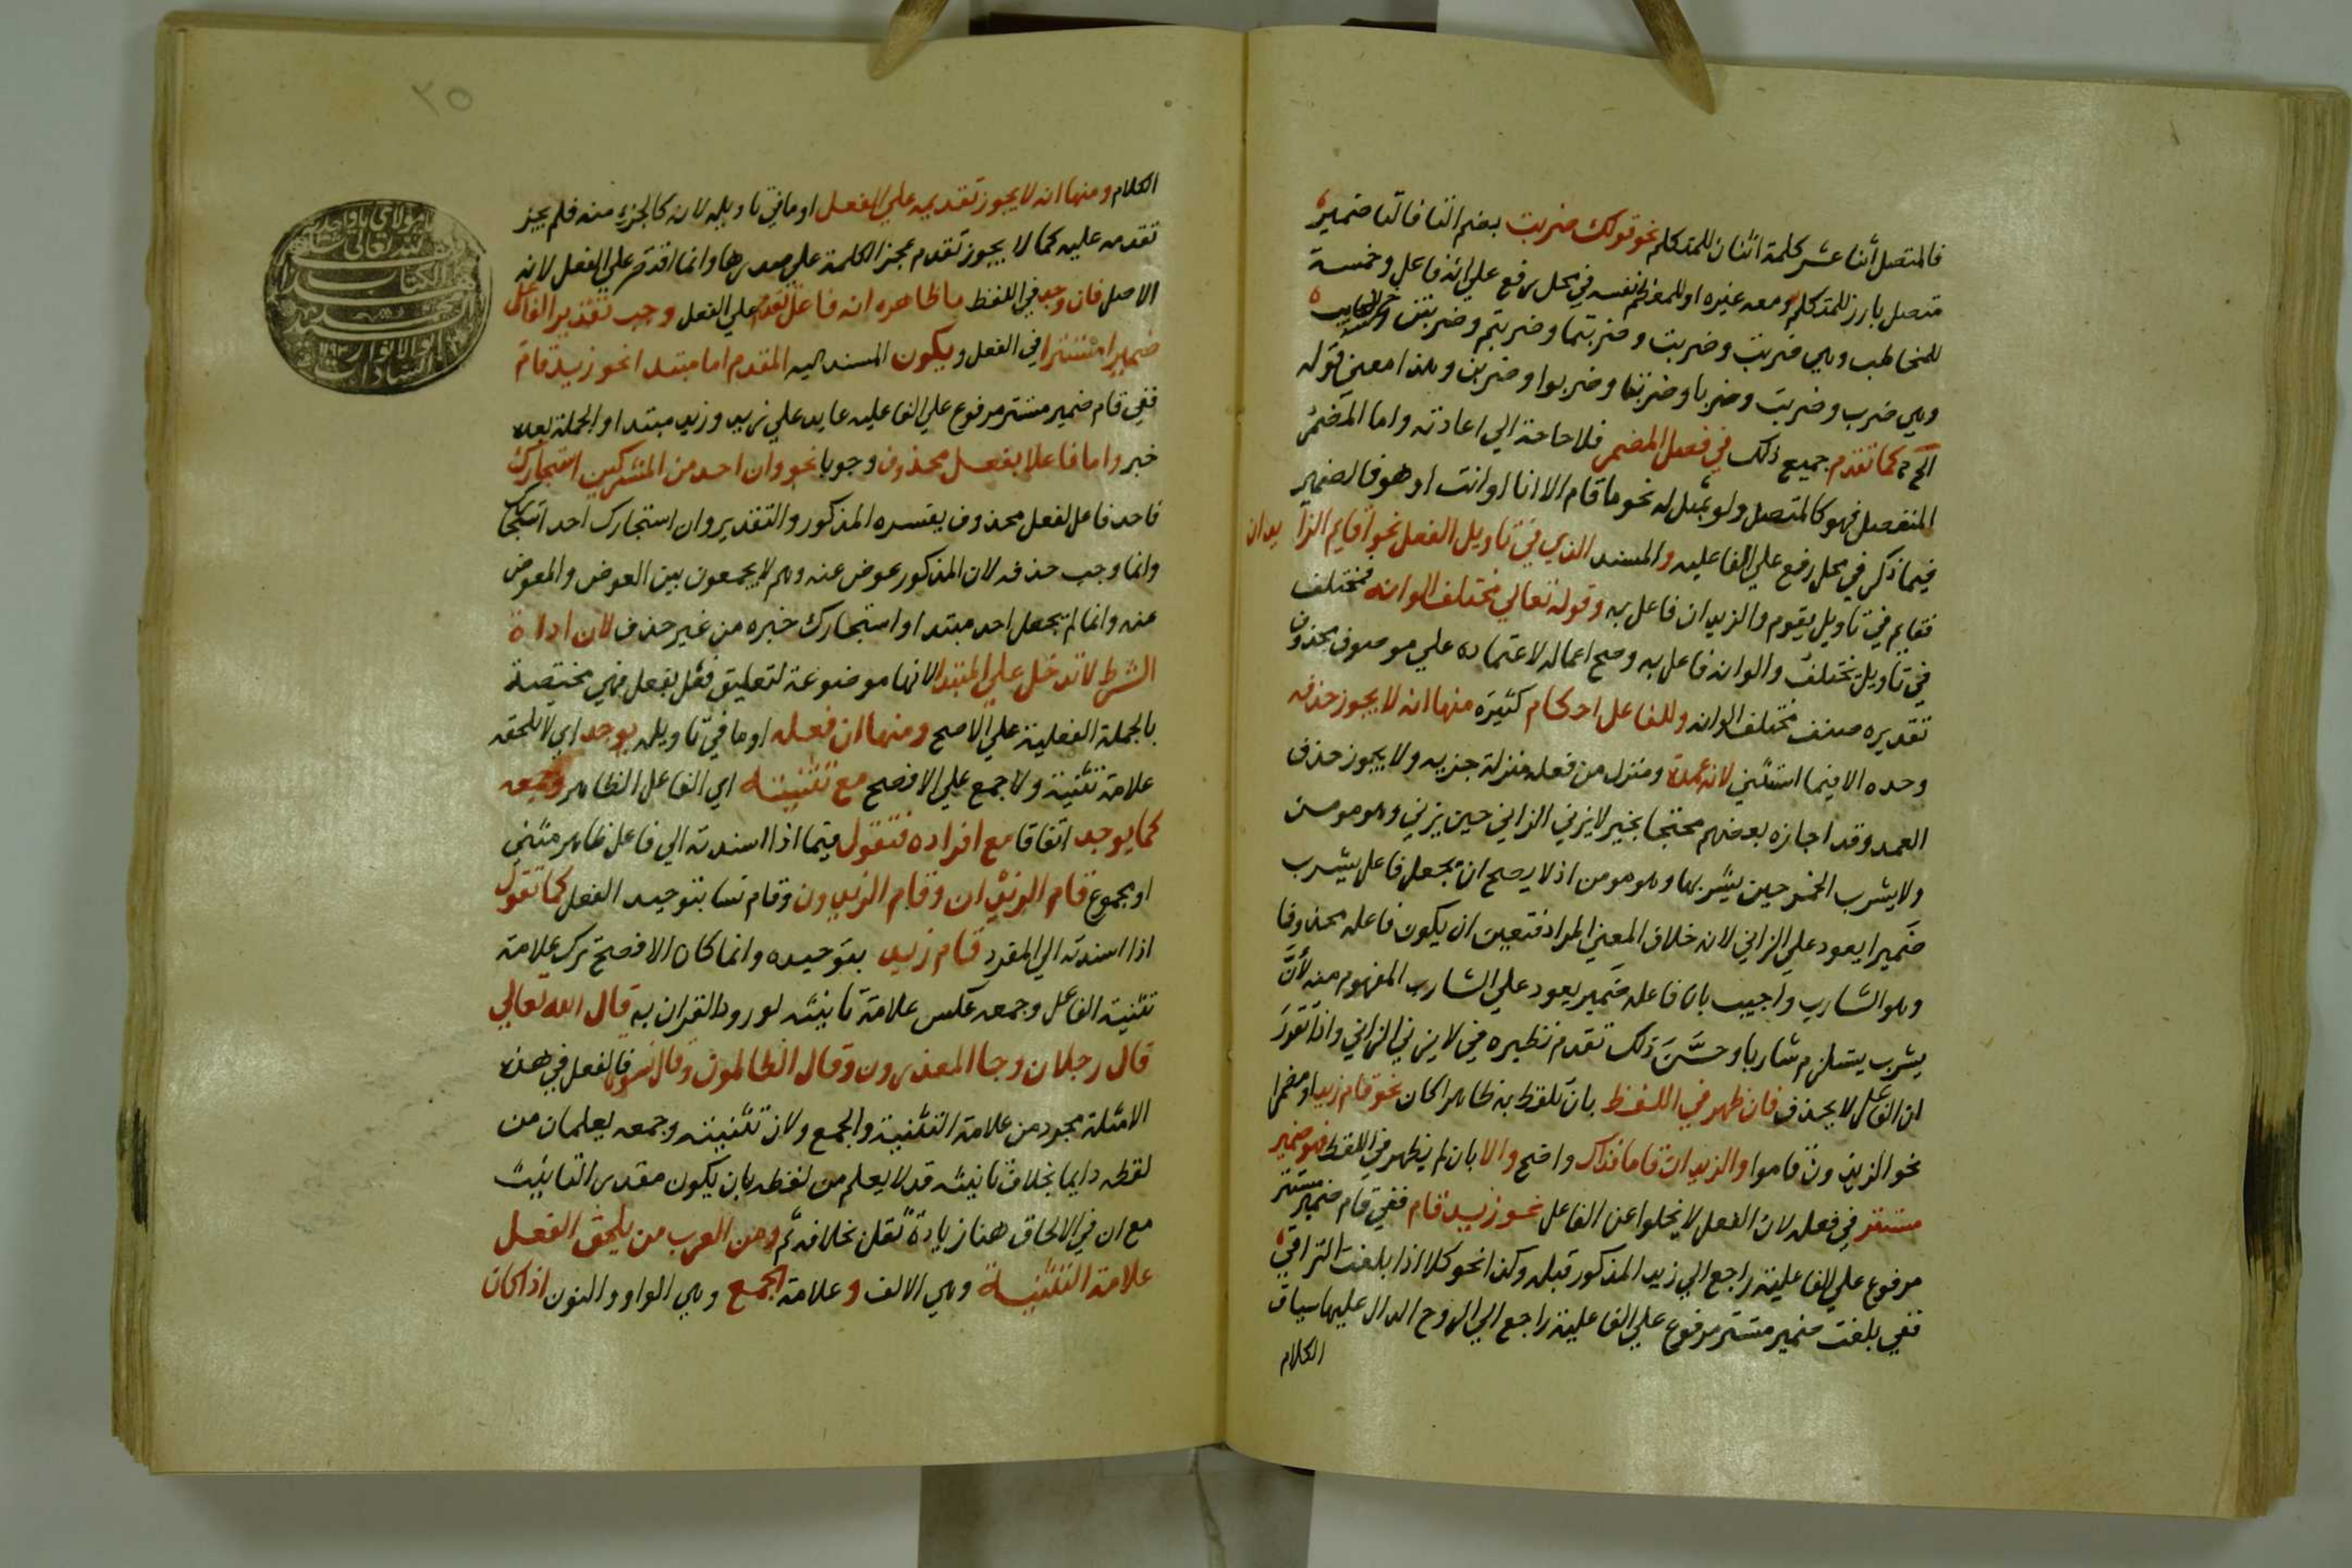 فالمتصل أثنا عشر كلمة اثنان للمتكلم نحو قولك ضربت بضم التا فالتا ضمير
متصل بارز للمتكلم ومعه غيره او للمعظم نفسه في محل رفع علي انه فاعل وخمسة
للمخاطب وهي ضربت وضربت وضربتما وضربتم وضربتن وخمسة للغايب
وهي ضرب وضربت وضربا وضربتا وضربوا وضربن وهذا معني قوله
الخ كما تقدم جميع ذلك في فصل المضمر فلا حاجة الي اعادته واما المضمر
المنفصل فهو كالمتصل ولو يمثل له نحو ما قام الا انا او انت او هو فالضمير
فيما ذكر في محل رفع علي الفاعليه والمسند الذي في تاويل الفعل نحو أقايم الزيدان
فقايم في تاويل يقوم والزيدان فاعل به وقوله تعالي مختلف الوانه فمختلف
في تاويل يختلف والوانه فاعل به وصح اعماله لاعتماده علي موصوف محذوف
تقديره صنف مختلف الوانه وللفاعل احكام كثيرة منها انه لا يجوز حذفه
وحده الا فيما استثني لانه عمدة ومنزل من فعله منزلة جزيه ولا يجوز حذف
العمد وقد اجازه بعضهم محتجا بخبر لا يزني الزاني حين يزني وهو مومن
ولا يشرب الخمر حين يشربها وهو مومن اذ لا يصح ان يجعل فاعل يشرب
ضميرا يعود علي الزاني لانه خلاف المعني المراد فتعين ان يكون فاعله محذوفا
وهو الشارب واجيب بان فاعله ضمير يعود علي الشارب المفهوم منه لأنّ
يشرب يستلزم شاربا وحسّنَ ذلك تقدم نظيره في لا يزني الزاني واذا تقرر
ان الفاعل لا يحذف فان ظهر في اللفظ بان تلفظ به ظاهرا كان نحو قام زيد او مضمرا
نحو الزيدون قاموا والزيدان قاما فذاك واضح والا بان لم يظهر في اللفظ فهو ضمير
مستتر في فعله لان الفعل لا يخلوا عن الفاعل نحو زيد قام ففي قام ضمير مستتر
مرفوع علي الفاعلية راجع الي زيد المذكور قبله وكذا نحو كلا اذا بلغت التراقي
ففي بلغت ضمير مستتر مرفوع علي الفاعلية راجع الي الروح الدال عليها سياق
الكلام
٢٥
الكلام ومنها انه لا يجوز تقديمه علي الفعل او ما في تاويله لانه كالجزء منه فلم يجز
تقدمه عليه كما لا يجوز تقدم عجز الكلمة علي صدرها وانما اقتصر علي الفعل لانه
الاصل فان وجد في اللفظ ما ظاهره انه فاعل تقدم علي الفعل وجب تقدير الفاعل
ضميرا مستترا في الفعل ويكون المسند اليه المقدم اما مبتدا نحو زيد قام
ففي قام ضمير مستتر مرفوع علي الفاعليه عايد علي زيد وزيد مبتدا والجملة بعده
خبر واما فاعلا بفعل محذوف وجوبا نحو وان احد من المشركين استجارك
فاحد فاعل لفعل محذوف يفسره المذكور والتقدير وان استجارك احد استجارك
وانما وجب حذفه لان المذكور عوض عنه وهم لا يجمعون بين العوض والمعوض
عنه وانما لم يجعل احد مبتدا واستجارك خبره من غير حذف لان اداة
الشرط لا تدخل علي المبتدا لانها موضوعة لتعليق فعل بفعل فهي مختصة
بالجملة الفعلية علي الاصح ومنها ان فعله او ما في تاويله يوحد اي لا تلحقه
علامة تثنية ولا جمع علي الافصح مع تثنيته اي الفاعل الظاهر وجمعه
كما يوحد اتفاقا مع افراده فتقول فيما اذا اسندته الي فاعل ظاهر مثني
او مجموع قام الزيدان وقام الزيدون وقام نسا بتوحيد الفعل كما تقول
اذا اسندته الي المفرد قام زيد بتوحيده وانما كان الافصح ترك علامة
تثنية الفاعل وجمعه عكس علامة تانيثه لورود القران به قال الله تعالي
قال رجلان وجا المعذرون وقال الظالمون وقال نسوة فالفعل في هذه
الامثلة مجرد من علامة التثنية والجمع ولان تثنيته وجمعه يعلمان من
لفظه دايما بخلاف تانيثه قد لا يعلم من لفظه بان يكون مقدر التانيث
مع ان في الالحاق هنا زيادة ثقل بخلافه ثم ومن العرب من يلحق الفعل
علامة التثنية وهي الالف وعلامة الجمع وهي الواو والنون اذا كان